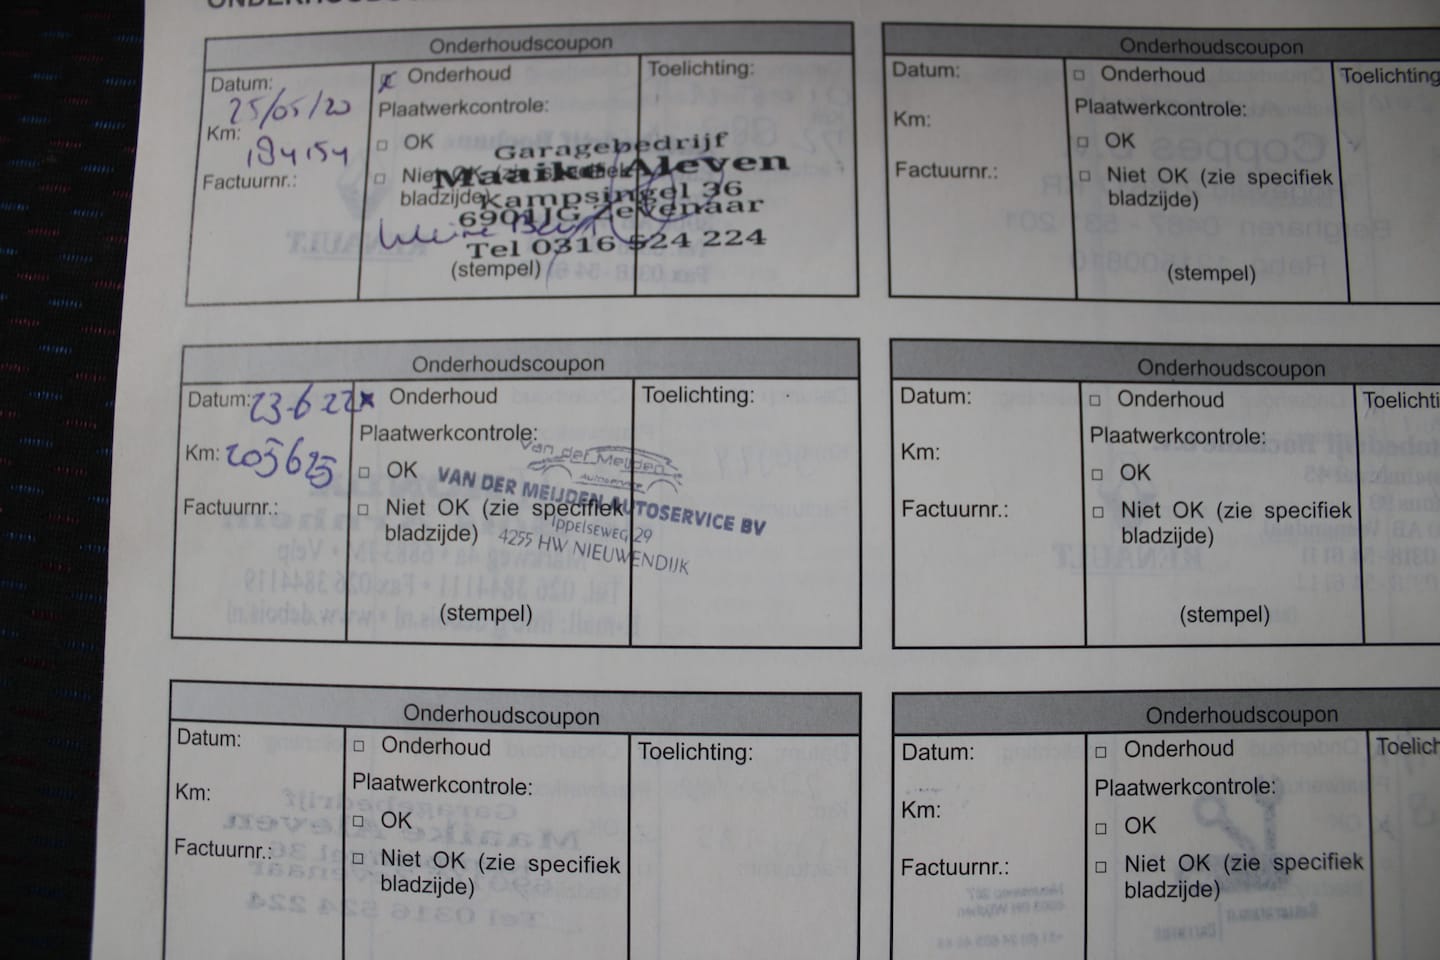 Onderhoudscoupon
Datum:
25/05/20
Km:
194154
Factuurnr.:
x Onderhoud
Plaatwerkcontrole:
□ OK
□ Niet OK (zie specifiek
bladzijde)
(stempel)
Toelichting:
Garagebedrijf
Maaike Aleven
Kampsingel 36
6901JG Zevenaar
Tel 0316 524 224
Kleine Beurt
Onderhoudscoupon
Datum:
Km:
Factuurnr.:
□ Onderhoud
Plaatwerkcontrole:
□ OK
□ Niet OK (zie specifiek
bladzijde)
(stempel)
Toelichting
Onderhoudscoupon
Datum: 23-6-22
Km: 205625
Factuurnr.:
x Onderhoud
Plaatwerkcontrole:
□ OK
□ Niet OK (zie specifiek
bladzijde)
(stempel)
Toelichting:
Van der Meijden
Autoservice
VAN DER MEIJDEN AUTOSERVICE BV
Ippelseweg 29
4255 HW NIEUWENDIJK
Onderhoudscoupon
Datum:
Km:
Factuurnr.:
□ Onderhoud
Plaatwerkcontrole:
□ OK
□ Niet OK (zie specifiek
bladzijde)
(stempel)
Toelichti
Onderhoudscoupon
Datum:
Km:
Factuurnr.:
□ Onderhoud
Plaatwerkcontrole:
□ OK
□ Niet OK (zie specifiek
bladzijde)
Toelichting:
Onderhoudscoupon
Datum:
Km:
Factuurnr.:
□ Onderhoud
Plaatwerkcontrole:
□ OK
□ Niet OK (zie specifiek
bladzijde)
Toelich